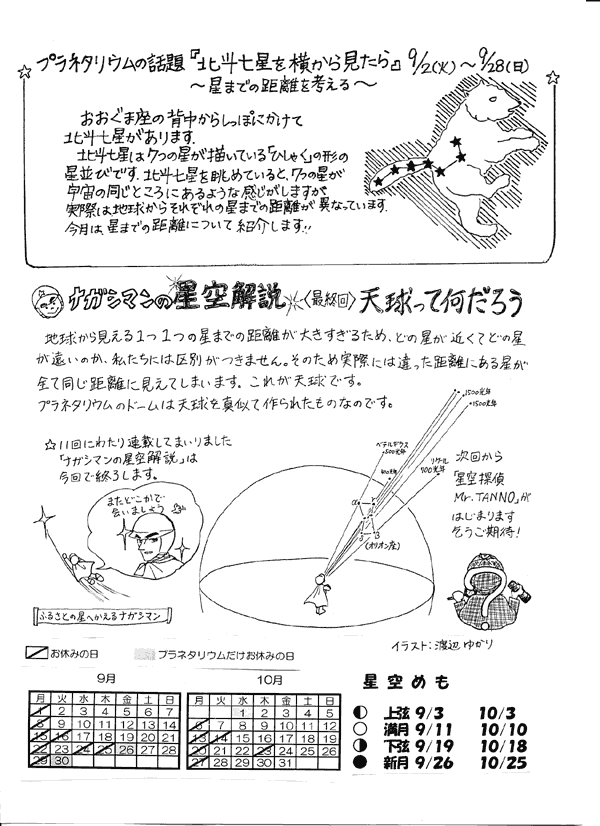 プラネタリウムの話題『北斗七星を横から見たら』9/2(火)～9/28(日)
～星までの距離を考える～
おおぐま座の背中からしっぽにかけて
北斗七星があります．
北斗七星は7つの星が描いている「ひしゃく」の形の
星並びです．北斗七星を眺めていると、7つの星が
宇宙の同じところにあるような感じがしますが
実際は地球からそれぞれの星までの距離が異なっています．
今月は星までの距離について紹介します!!
ナガシマンの星空解説〈最終回〉天球って何だろう
地球から見える1つ1つの星までの距離が大きすぎるため、どの星が近くてどの星
が遠いのか、私たちには区別がつきません。そのため実際には違った距離にある星が
全て同じ距離に見えてしまいます．これが天球です。
プラネタリウムのドームは天球を真似て作られたものなのです。
☆11回にわたり連載してまいりました
「ナガシマンの星空解説」は
今回で終ろします。
またどこかで
会いましょう
ふるさとの星へかえるナガシマン
1500光年
1500光年
ベテルギウス
500光年
リゲル
700光年
α
γ
β
(オリオン座)
次回から
「星空探偵
Mr.TANNO」が
はじまります
乞うご期待！
イラスト：渡辺ゆかり
お休みの日
プラネタリウムだけお休みの日
9月
月 火 水 木 金 土 日
1 2 3 4 5 6 7
8 9 10 11 12 13 14
15 16 17 18 19 20 21
22 23 24 25 26 27 28
29 30
10月
月 火 水 木 金 土 日
1 2 3 4 5
6 7 8 9 10 11 12
13 14 15 16 17 18 19
20 21 22 23 24 25 26
27 28 29 30 31
星空めも
上弦 9/3 10/3
満月 9/11 10/10
下弦 9/19 10/18
新月 9/26 10/25